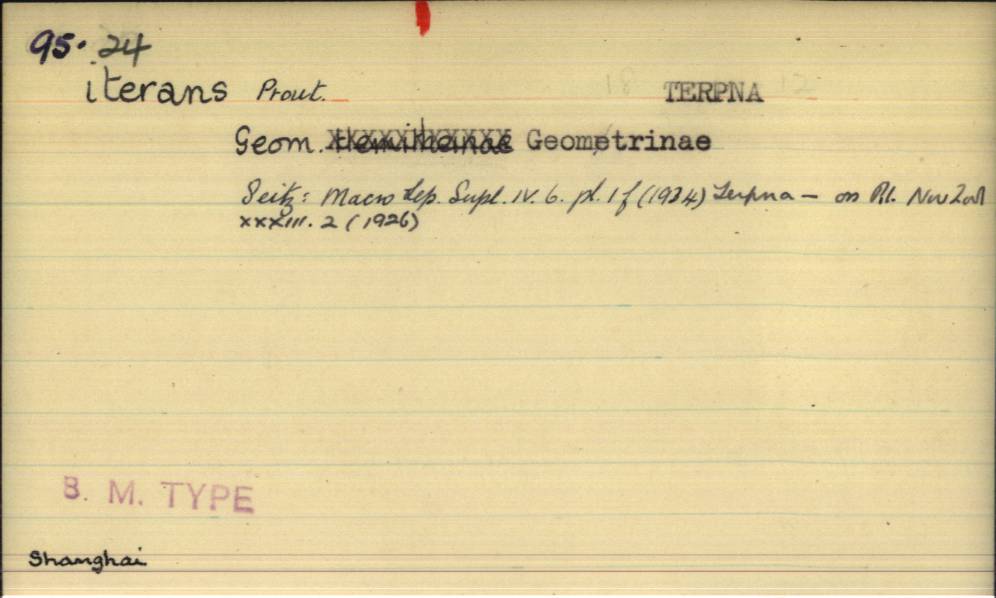 95. 24
iterans Prout. 18 TERPNA 12
Geom. Geometrinae
Seitz: Macro Lep. Supl. IV. 6. pl. 1 f (1934) Terpna — on Pl. Nov Zool
xxxiii. 2 (1926)
B. M. TYPE
Shanghai